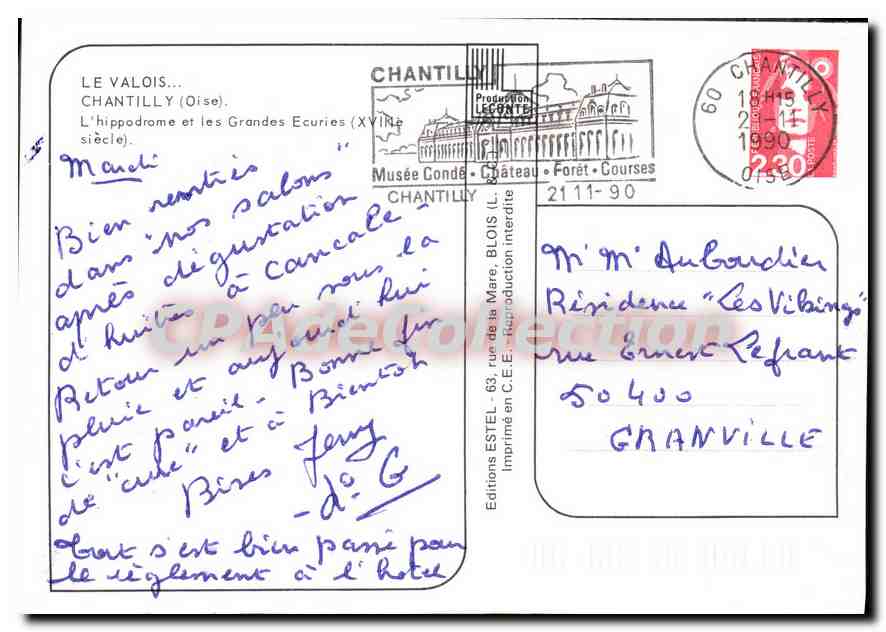 LE VALOIS...
CHANTILLY (Oise).
L'hippodrome et les Grandes Ecuries (XVIIIe
siècle).
Mardi
Bien rentrés
dans "nos salons"
après dégustation
d'huitres à Cancale -
Retour un peu sous la
pluie et aujourd'hui
c'est pareil - Bonne fin
de "cure" et à Bientôt
Bises Jemy
- d° G
Tout s'est bien passé pour
le règlement à l'hotel
CHANTILLY
Production
LECONTE
Musée Condé • Château • Forêt • Courses
CHANTILLY 21 11-90
60 CHANTILLY
18H15
21-11
1990
OISE
REPUBLIQUE FRANÇAISE
LA POSTE
2,30
Editions ESTEL - 63, rue de la Mare, BLOIS (L. &
Imprimé en C.E.E. - Reproduction interdite
Mr Me Auboudier
Résidence "Les Vikings"
rue Ernest Lefrant
50400
GRANVILLE
CPAdeCollection